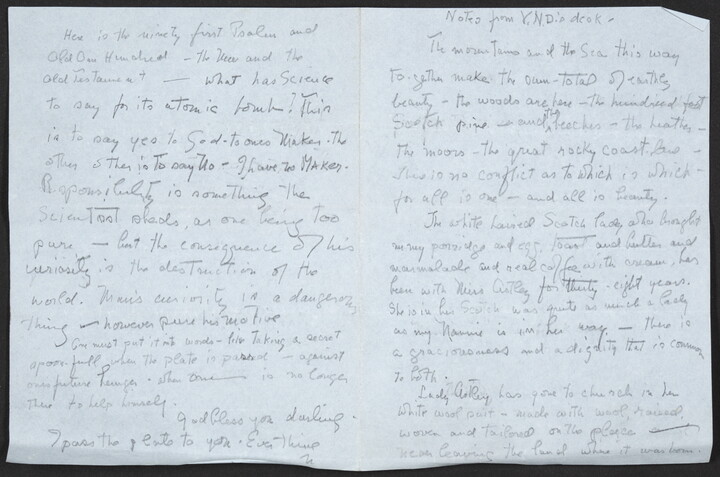 Here is the ninety first Psalm and
Old One Hundred - the New and the
Old Testament - what has Science
to say for its atomic bomb! This
is to say yes to God - to ones Maker. The
other is to say No - I have no Maker.
Responsibility is something the
Scientist sheds, as one being too
pure - but the consequence of his
curiosity is the destruction of the
world. Mans curiosity is a dangerous
thing - however pure his motive.
One must put it into words - like taking a secret
spoonfull when the plate is passed - against
ones future hunger. When one is no longer
there to help himself.
God bless you darling.
I pass the plate to you. Everything
Notes from V.N.D's desk -
The mountains and the Sea this way
together make the sum-total of earthly
beauty - the woods are here - the hundred foot
Scotch pine - and the beeches - the heather -
the moors - the great rocky coast line -
there is no conflict as to which is which -
for all is one - and all is beauty.
The white haired Scotch lady who brought
in my porridge and egg, toast and butter and
marmalade and real coffee with cream, has
been with Miss Astley for thirty-eight years.
She is in her Scotch way quite as much a lady
as my Nannie is in her way - there is
a graciousness and a dignity that is common
to both.
Lady Astley has gone to church in her
white wool suit - made with wool, raised,
woven and tailored on the place
never leaving the land where it was born.